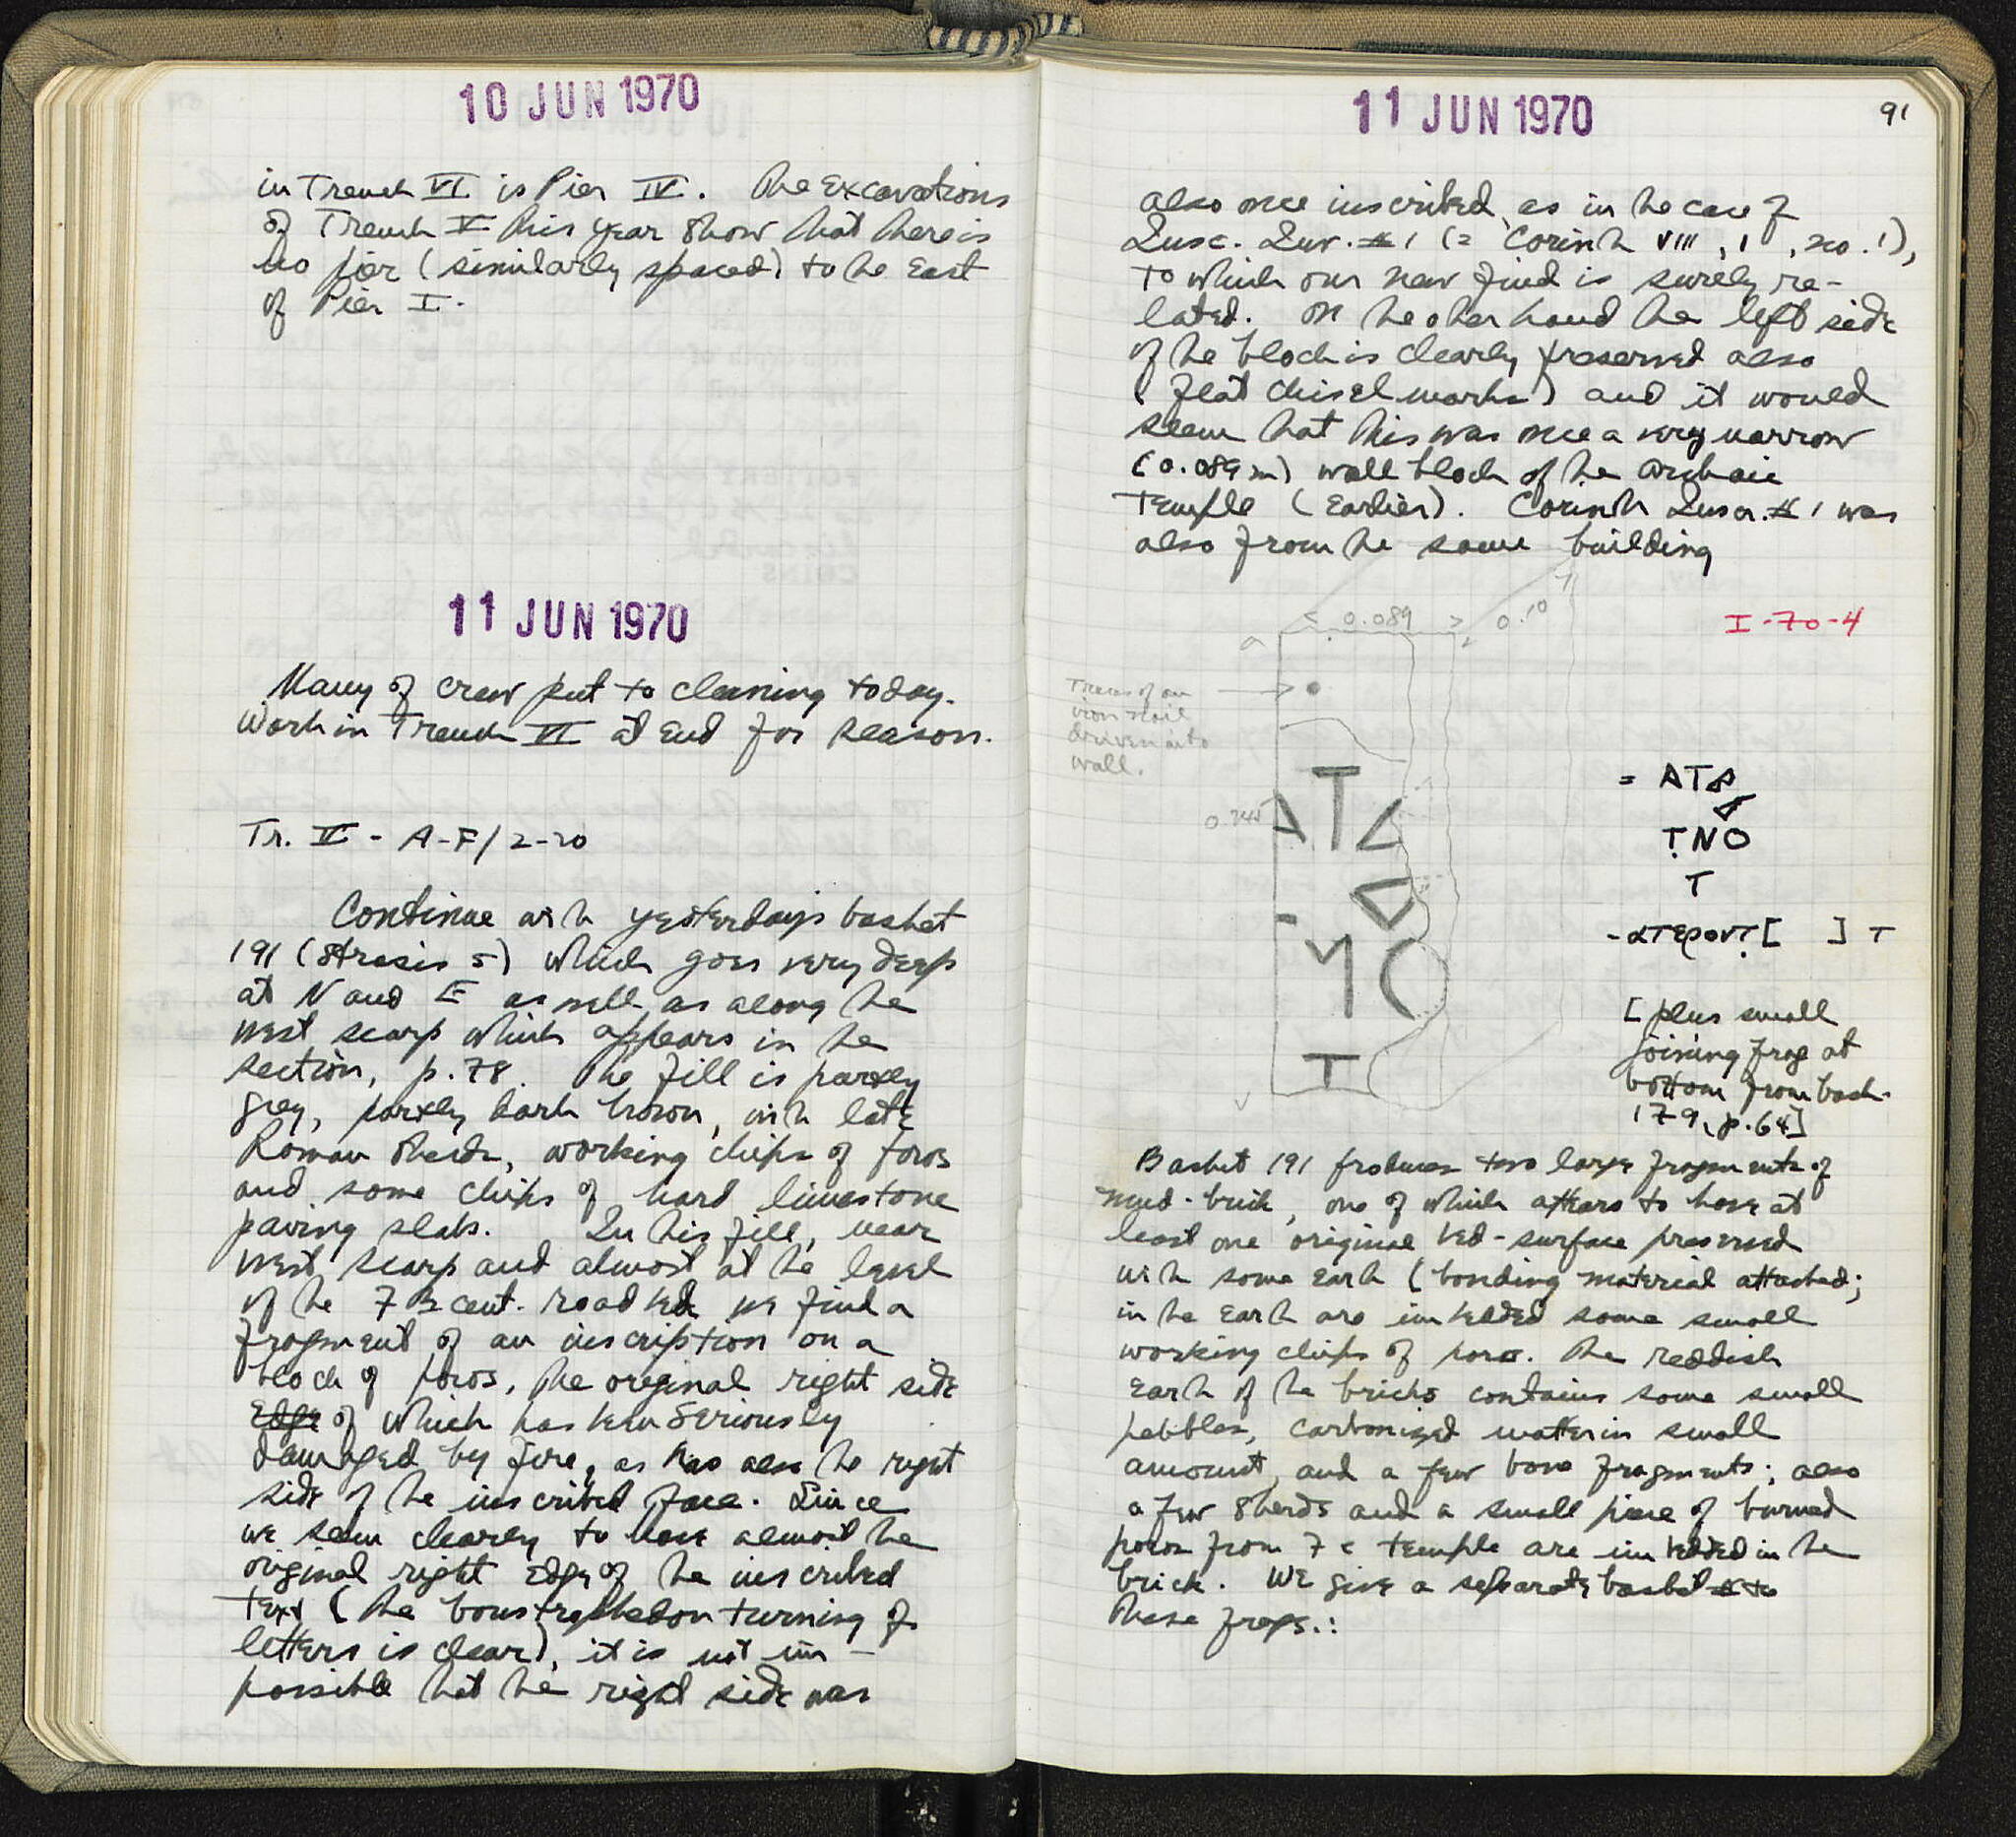 10 JUN 1970
in Trench VI is Pier IV. The Excavations
of Trench V this year show that there is
no pier (similarly spaced) to the East
of Pier I.
11 JUN 1970
Many of crew put to cleaning today.
Work in Trench VI at end for season.
Tr. VI - A-F/2-20
Continue with yesterday's basket
191 (Strosis 5) which goes very deep
at N and E as well as along the
west scarp which appears in the
section, p. 78. The fill is partly
grey, partly dark brown, with late
Roman sherds, working chips of poros
and some chips of hard limestone
paving slabs. In this fill, near
west scarp and almost at the level
of the 7 B cent. road bed we find a
fragment of an inscription on a
block of poros, the original right side
Edge of which has been seriously
damaged by fire, as has also the right
side of the inscribed face. Since
we seem clearly to have almost the
original right edge of the inscribed
text (the boustrophedon turning of
letters is clear), it is not im-
possible that the right side was
11 JUN 1970
91
also once inscribed, as in the case of
Insc. Inv. # 1 (= Corinth VIII, 1, no. 1),
to which our new find is surely re-
lated. On the other hand the left side
of the block is clearly preserved also
(flat chisel marks) and it would
seem that this was once a very narrow
(0.089 m) wall block of the archaic
Temple (Earlier). Corinth Inscr. # 1 was
also from the same building
0.089
0.10
I-70-4
Traces of an
iron nail
driven into
wall.
0.245
ATA
MO
T
= ATP
TNO
T
[plus small
joining frag at
bottom from bask.
179, p. 64]
Basket 191 produces two large fragments of
mud-brick, one of which appears to have at
least one original bed-surface preserved
with some earth (bonding material attached;
in the earth are imbedded some small
working chips of poros. The reddish
earth of the bricks contains some small
pebbles, carbonized matter in small
amount, and a few bone fragments; also
a few sherds and a small piece of burned
poros from 7 c temple are imbedded in the
brick. We give a separate basket # to
these frags.: